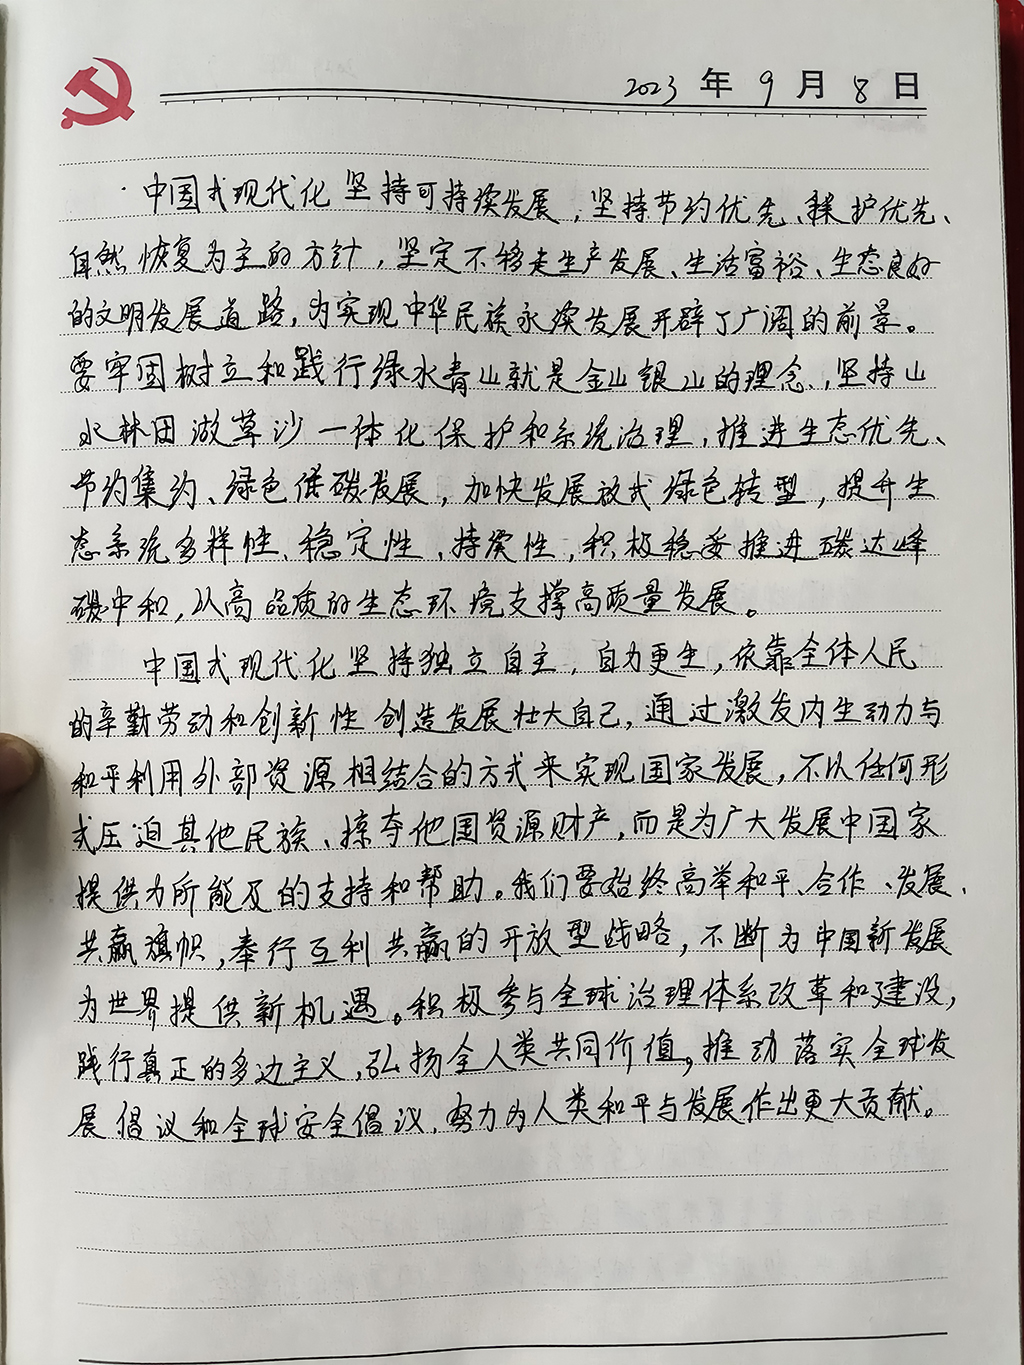 2023 年 9 月 8 日
中国式现代化坚持可持续发展，坚持节约优先、保护优先、
自然恢复为主的方针，坚定不移走生产发展、生活富裕、生态良好
的文明发展道路，为实现中华民族永续发展开辟了广阔的前景。
要牢固树立和践行绿水青山就是金山银山的理念，坚持山
水林田湖草沙一体化保护和系统治理，推进生态优先、
节约集约、绿色低碳发展，加快发展放式绿色转型，提升生
态系统多样性、稳定性、持续性，积极稳妥推进碳达峰
碳中和，以高品质的生态环境支撑高质量发展。
中国式现代化坚持独立自主，自力更生，依靠全体人民
的辛勤劳动和创新性创造发展壮大自己，通过激发内生动力与
和平利用外部资源相结合的方式来实现国家发展，不以任何形
式压迫其他民族、掠夺他国资源财产，而是为广大发展中国家
提供力所能及的支持和帮助。我们要始终高举和平、合作、发展、
共赢旗帜，奉行互利共赢的开放型战略，不断为中国新发展
为世界提供新机遇。积极参与全球治理体系改革和建设，
践行真正的多边主义，弘扬全人类共同价值，推动落实全球发
展倡议和全球安全倡议，努力为人类和平与发展作出更大贡献。